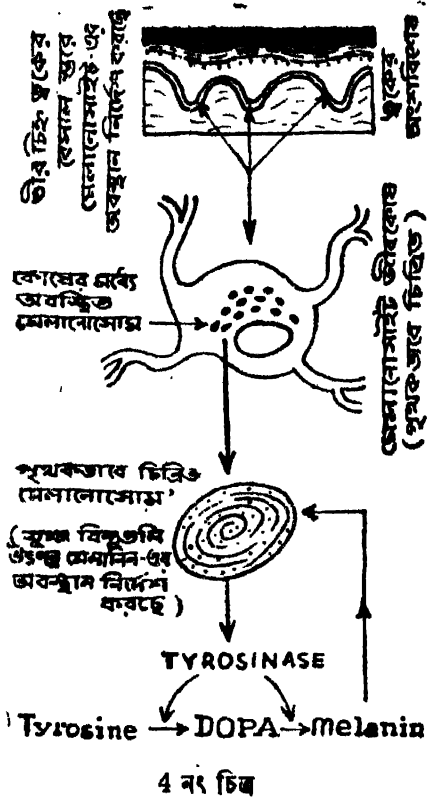 তীর চিহ্ন ত্বকের
বেসাল স্তরে
মেলানোসাইট-এর
অবস্থান নির্দেশ করছে
ত্বকের
অংশবিশেষ
কোষের মধ্যে
অবস্থিত
মেলানোসোম
মেলানোসাইট জীবকোষ
(পৃথকভাবে চিত্রিত)
পৃথকভাবে চিত্রিত
মেলানোসোম
(সূক্ষ্ম বিন্দুগুলি
উৎপন্ন মেলানিন-এর
অবস্থান নির্দেশ
করছে)
TYROSINASE
Tyrosine → DOPA → melanin
4 নং চিত্র